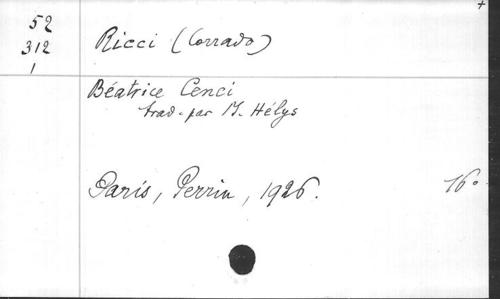 52
312
1
Ricci (Corrado)
Béatrice Cenci
trad. par M. Hélys
Paris, Perrin, 1926.
16°